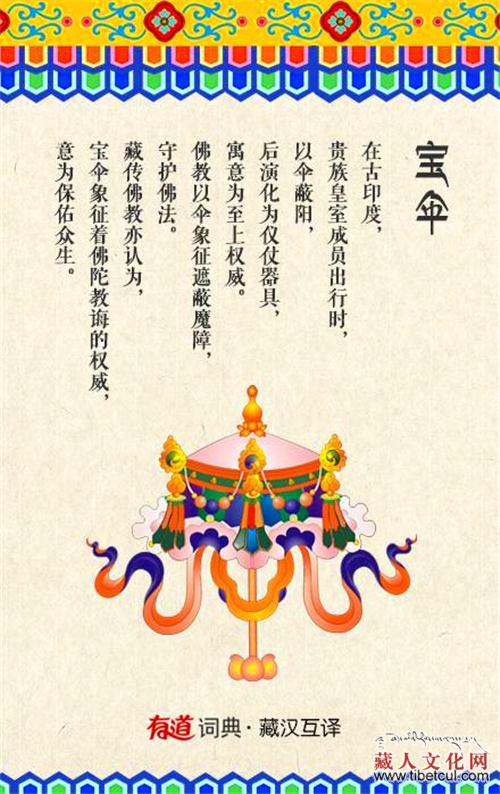 宝伞
在古印度，
贵族皇室成员出行时，
以伞蔽阳，
后演化为仪仗器具，
寓意为至上权威。
佛教以伞象征遮蔽魔障，
守护佛法。
藏传佛教亦认为，
宝伞象征着佛陀教诲的权威，
意为保佑众生。
有道词典·藏汉互译
藏人文化网
www.tibetcul.com